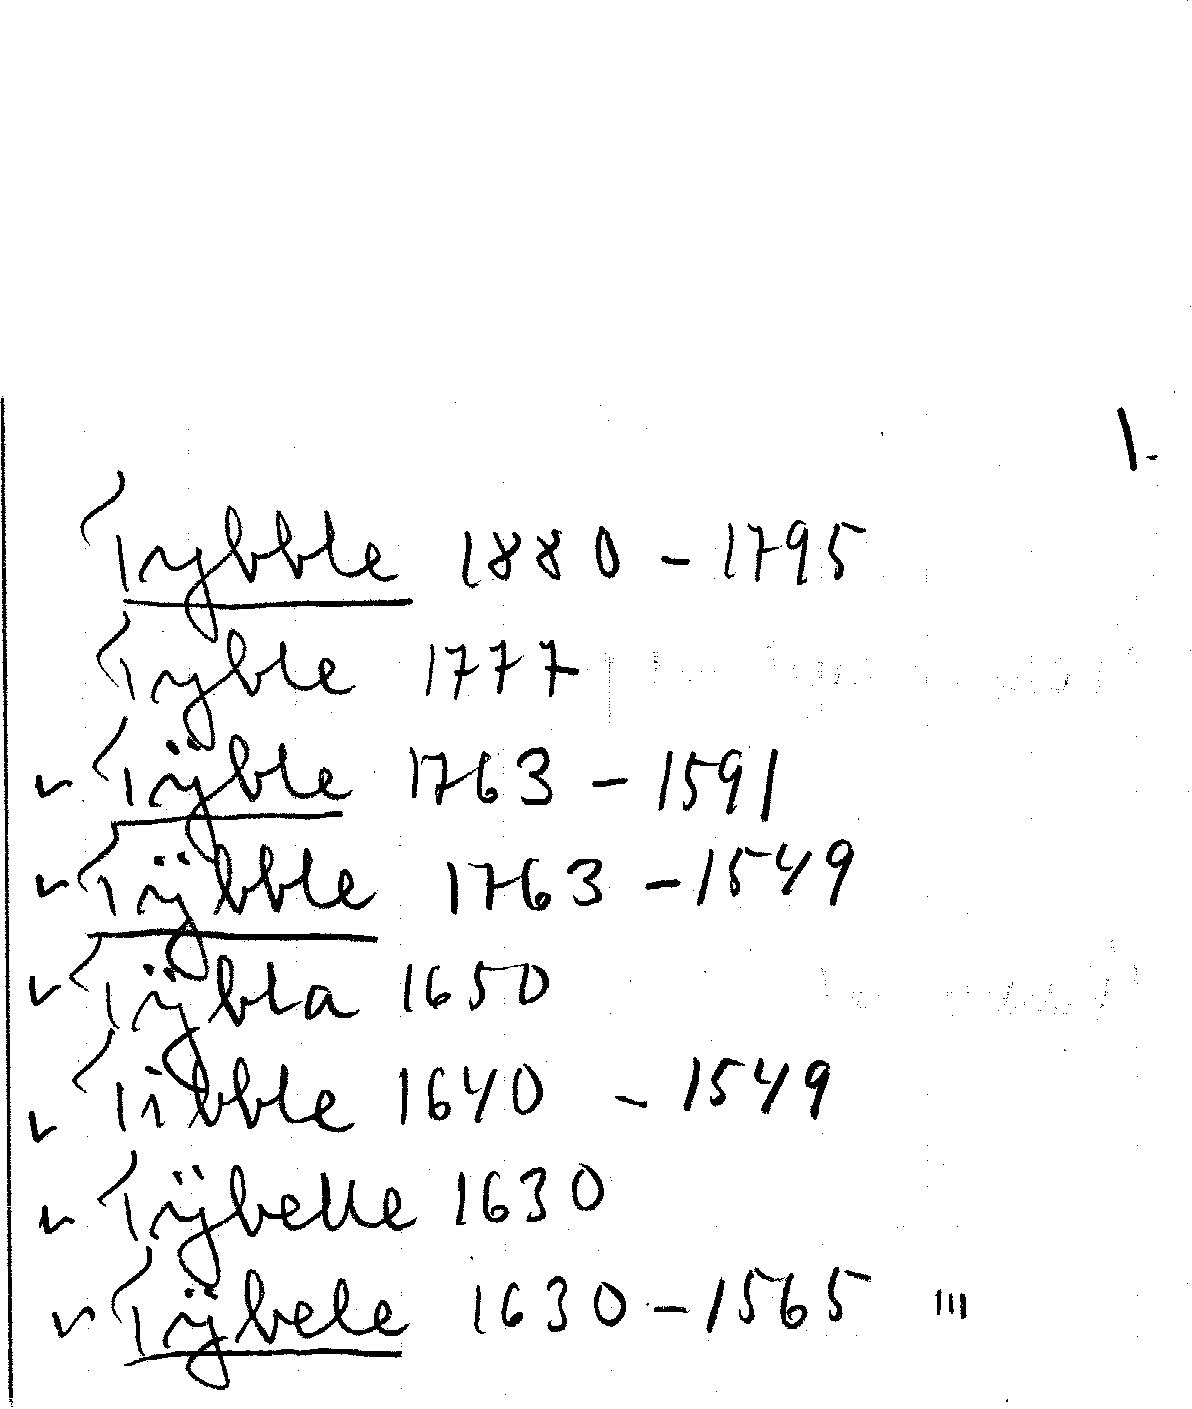 1.
Tybble 1880 - 1795
Tyble 1777
✓ Tÿble 1763 - 1591
✓ Tÿbble 1763 - 1549
✓ Tÿbla 1650
✓ Tibble 1640 - 1549
✓ Tÿbelle 1630
✓ Tÿbele 1630 - 1565 III